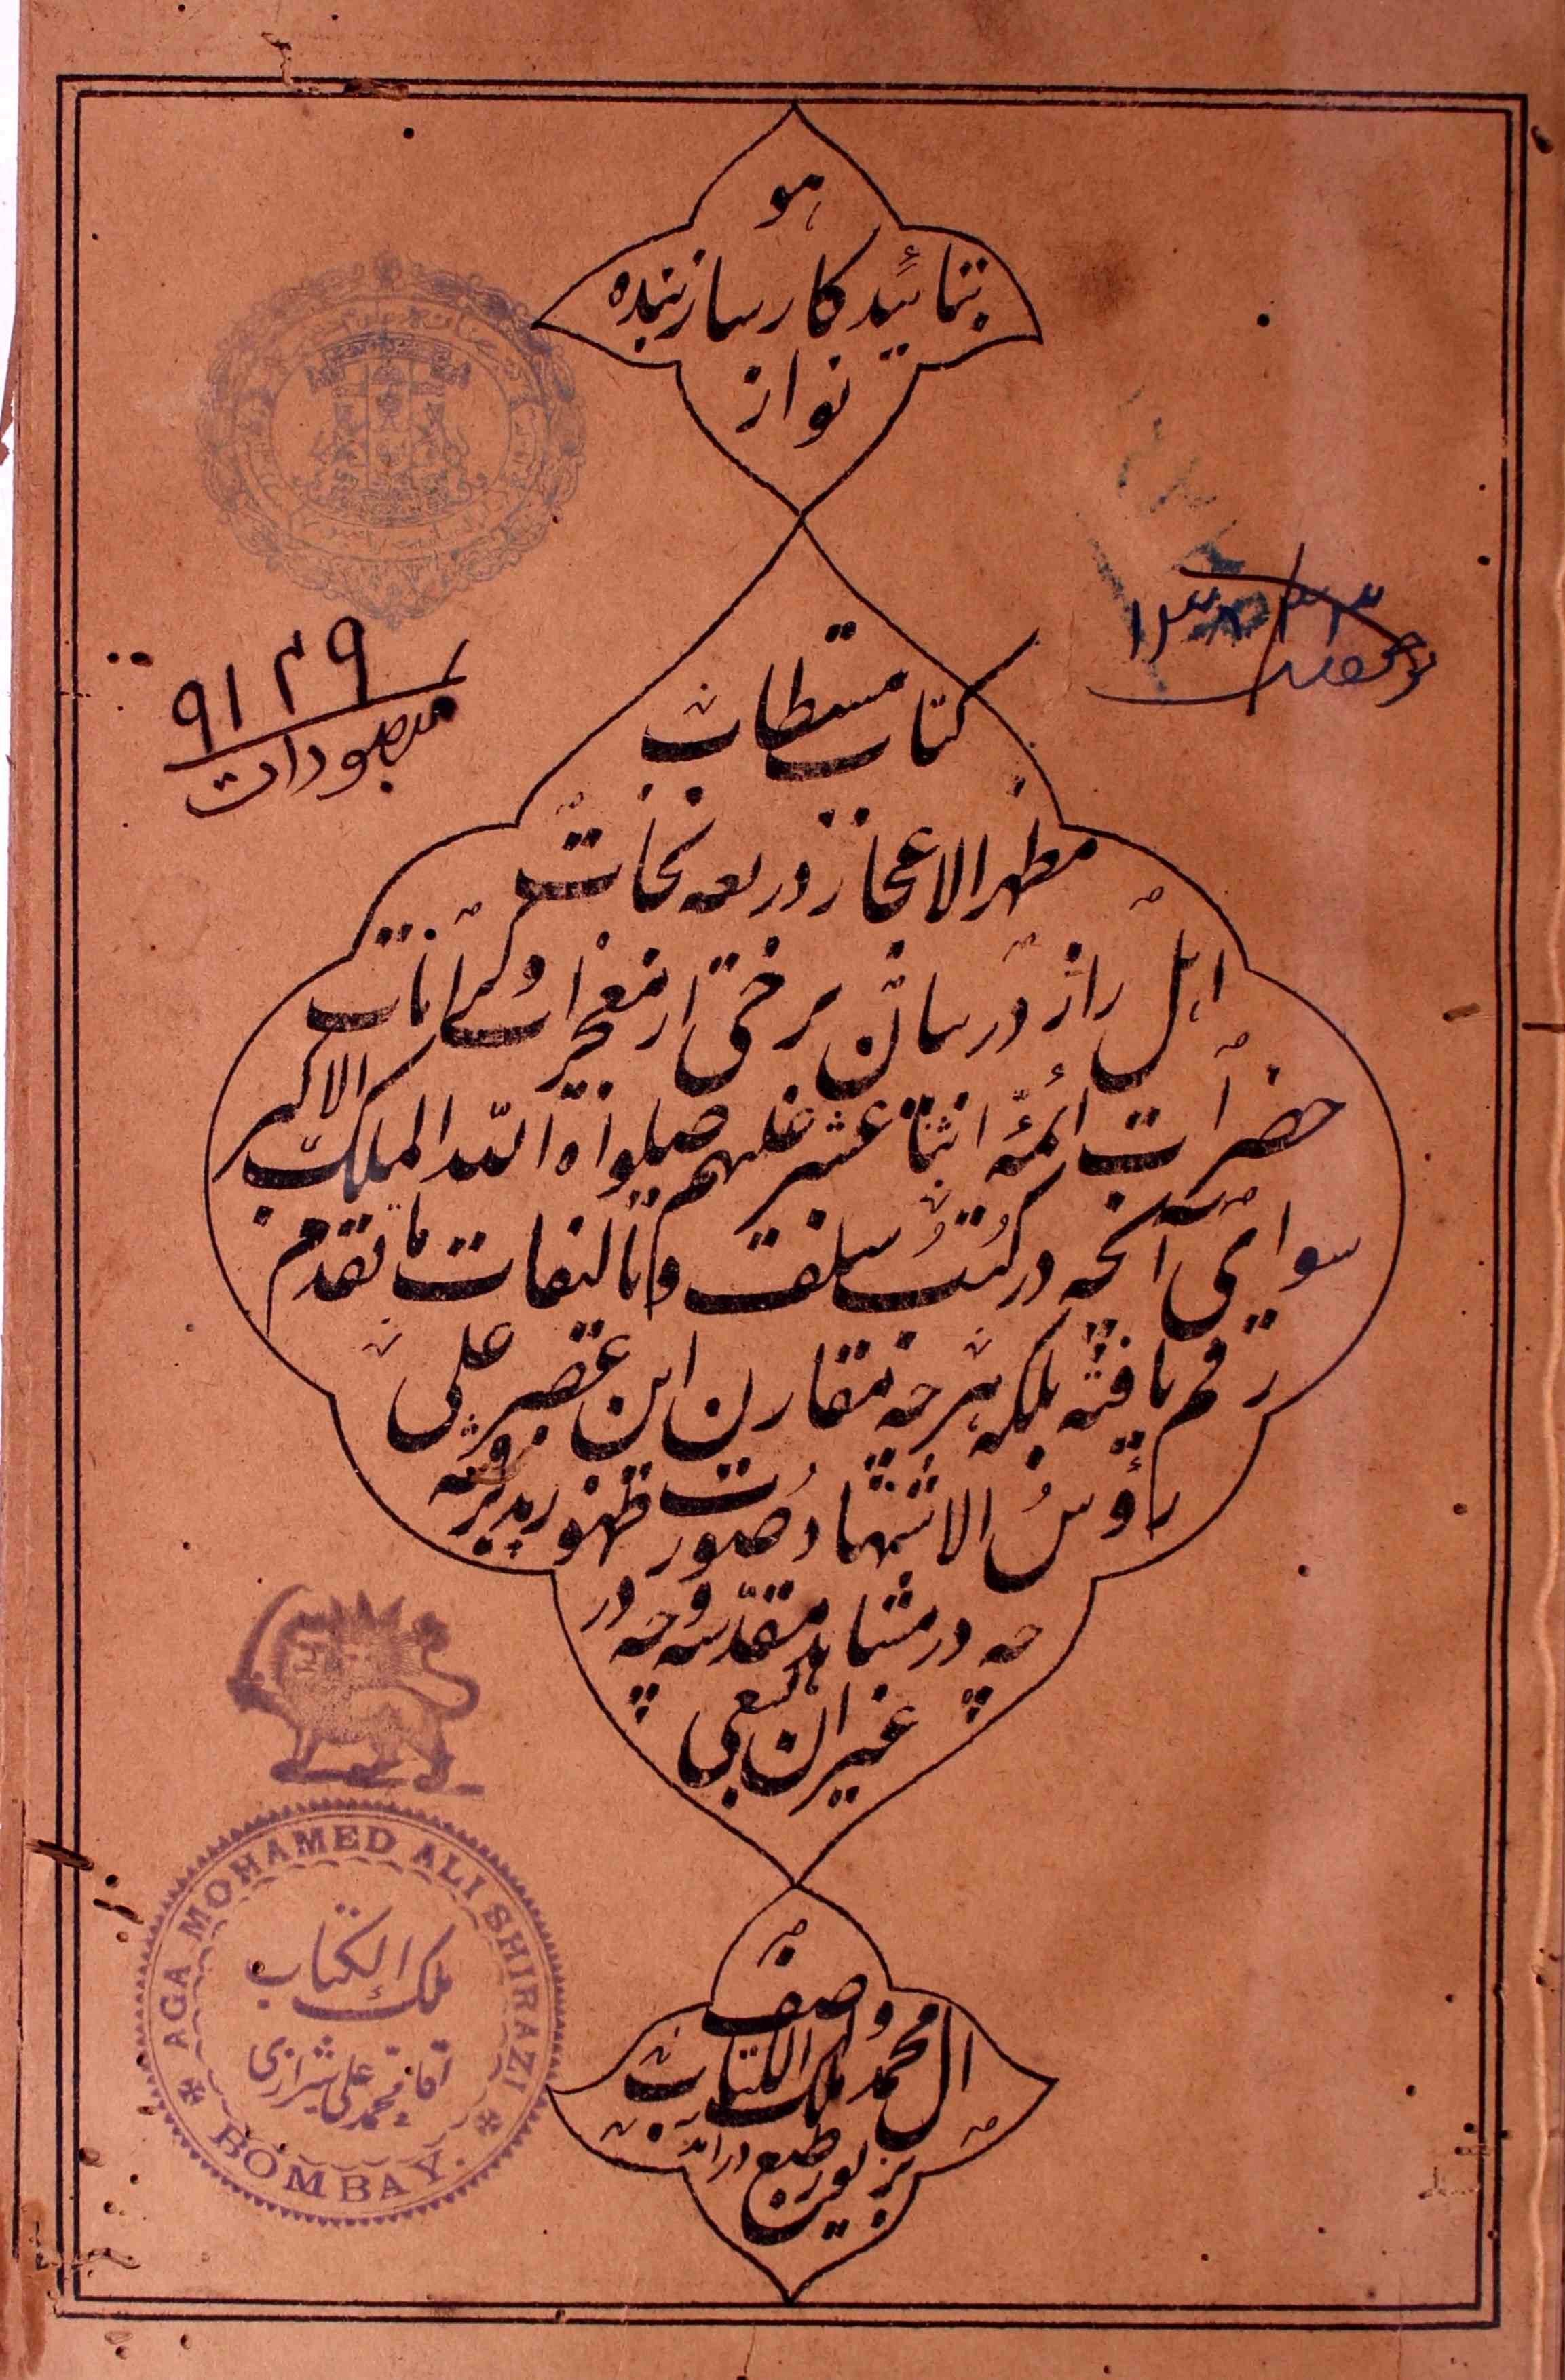 هو
بتائید کارساز بنده
نواز
کتاب مستطاب
مظهر الاعجاز و ذریعه نجات
اهل راز در بیان برخی از معجزات و کرامات
حضرات ائمّه اثنا عشر علیهم صلواة الله الملک الاکبر
سوای آنچه در کتب سلف و تالیفات ما تقدم
رقم یافته بلکه هرچه مقارن این عصر علی
رؤس الاشتهاد صورت ظهور پذیرفته
چه در مشاهد مقدّسه و چه در
غیر آن بسعی
وصّاف
ال محمد ملک الکتاب
بزیور طبع در آمد
۹۱۴۹
AGA MOHAMED ALI SHIRAZI
ملک الکتاب
آقا میرزا محمد علی شیرازی
BOMBAY.